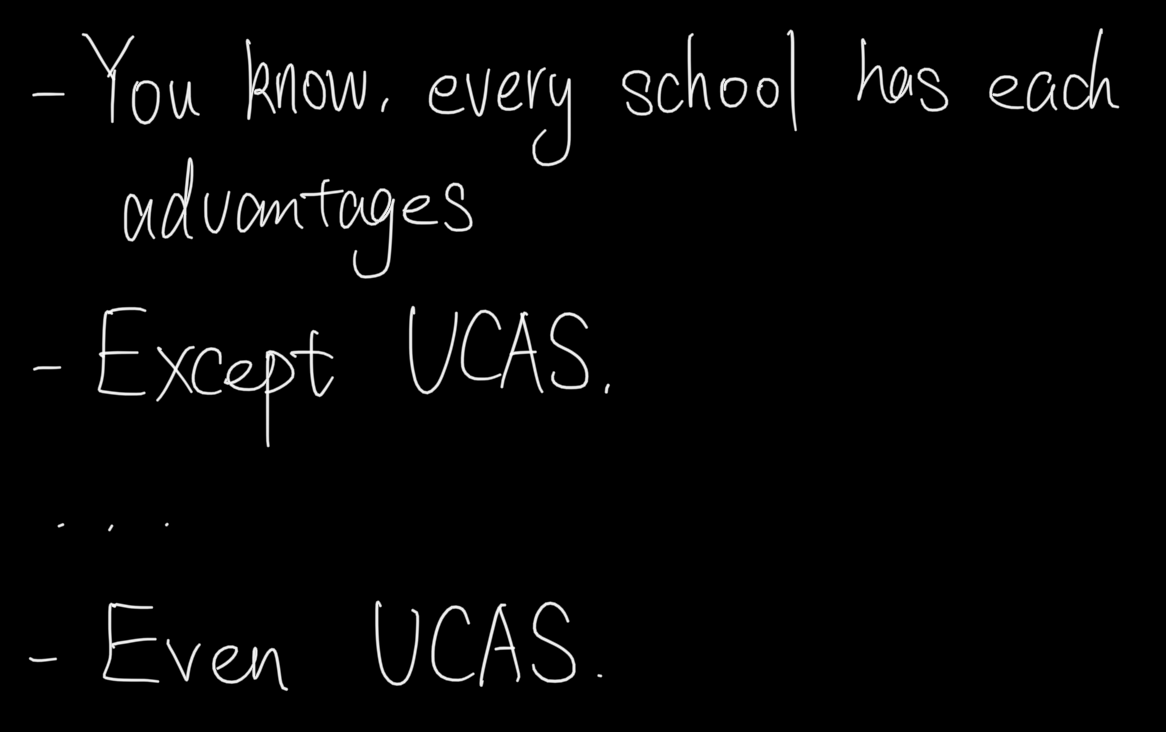 - You know, every school has each
advantages
- Except UCAS.
...
- Even UCAS.